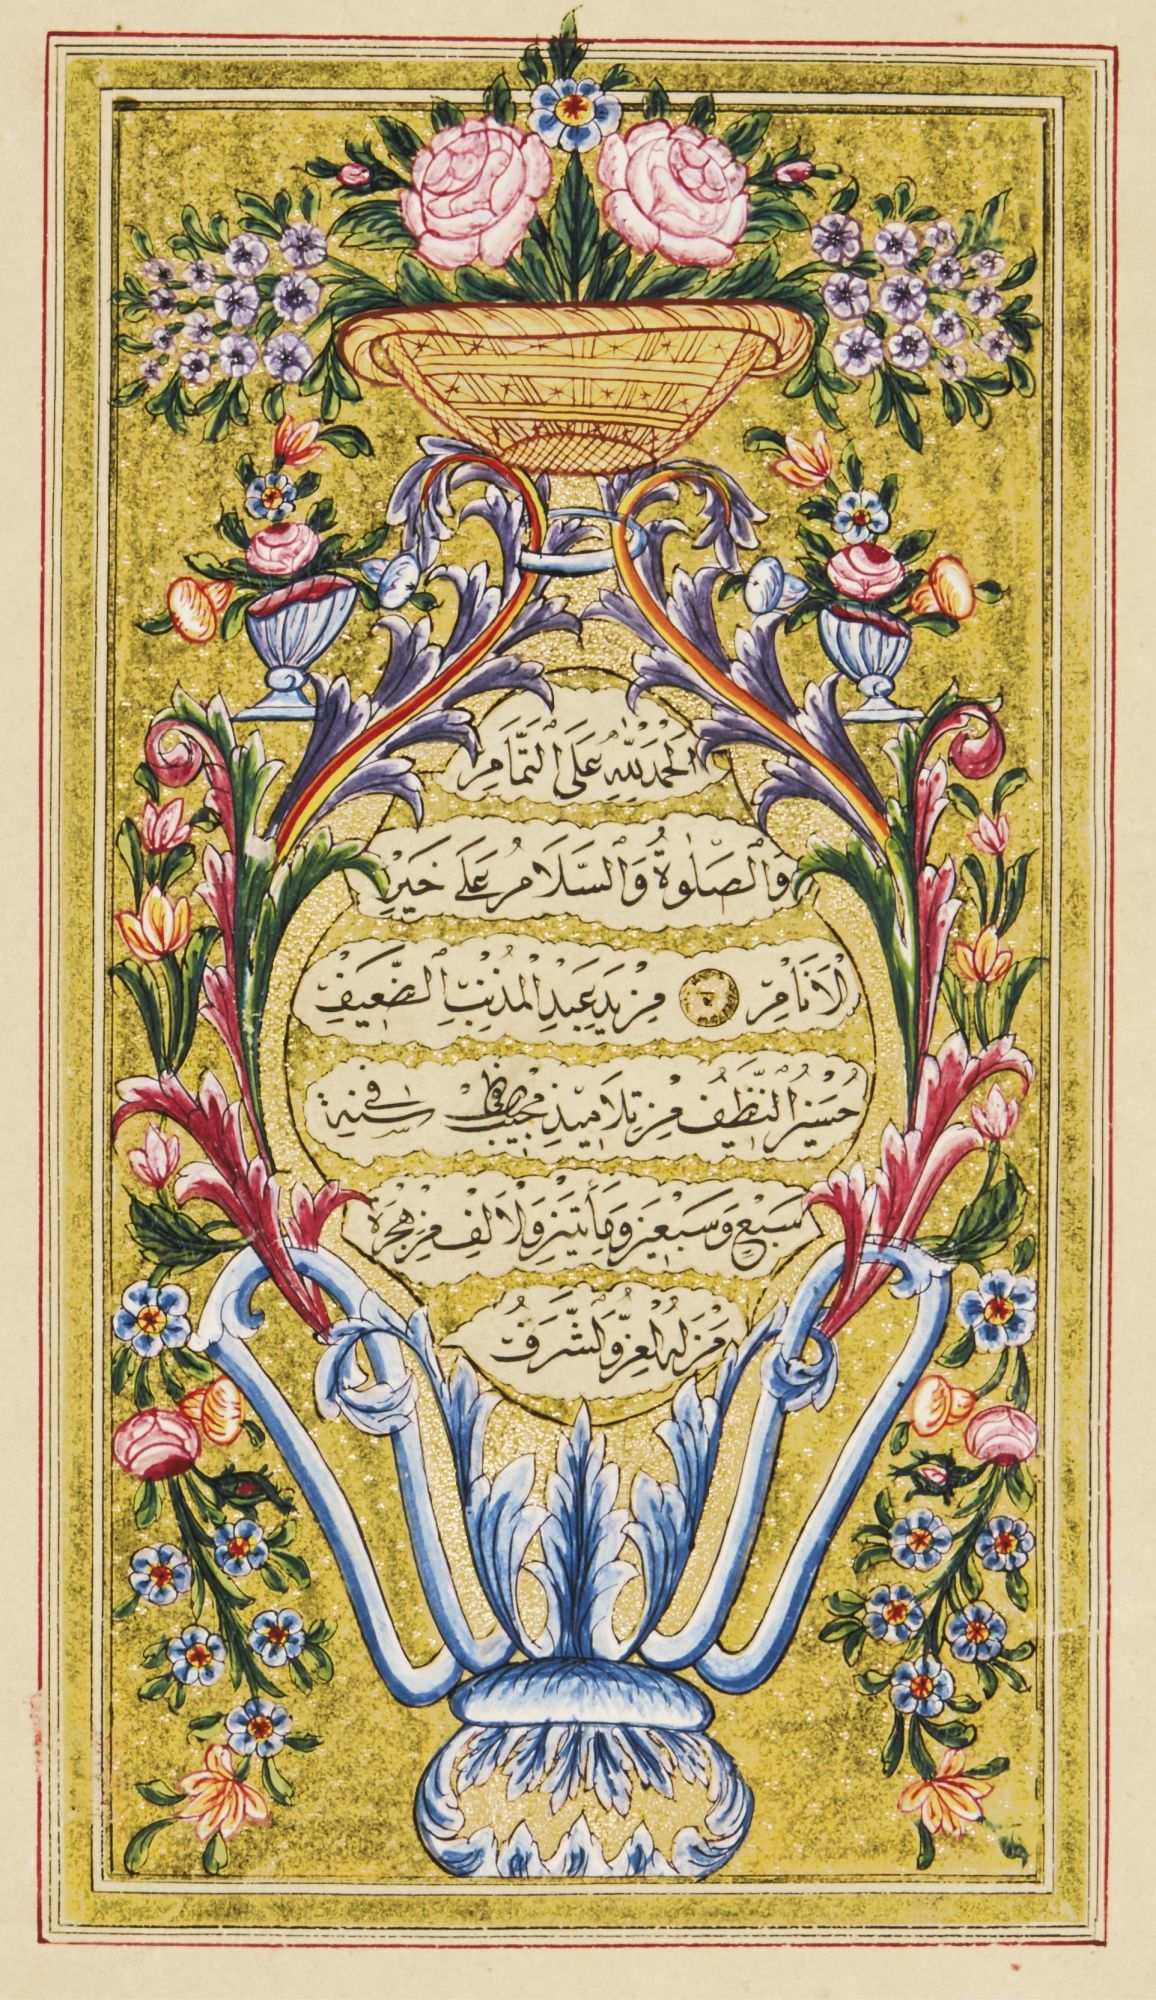 اَلْحَمْدُ لِلّٰهِ عَلَى التَّمَامِ
وَالصَّلٰوةُ وَالسَّلَامُ عَلَى خَيْرِ
الْاَنَامِ مِنْ يَدِ عَبْدِ الْمُذْنِبِ الضَّعِيفِ
حُسَيْنُ النَّظِيفُ مِنْ تَلَامِيذِ فِي سَنَةِ
سَبْعٍ وَسَبْعِينَ وَمِأَتَيْنِ وَالْاَلْفِ مِنْ هِجْرَةِ
مَنْ لَهُ الْعِزُّ وَالشَّرَفُ